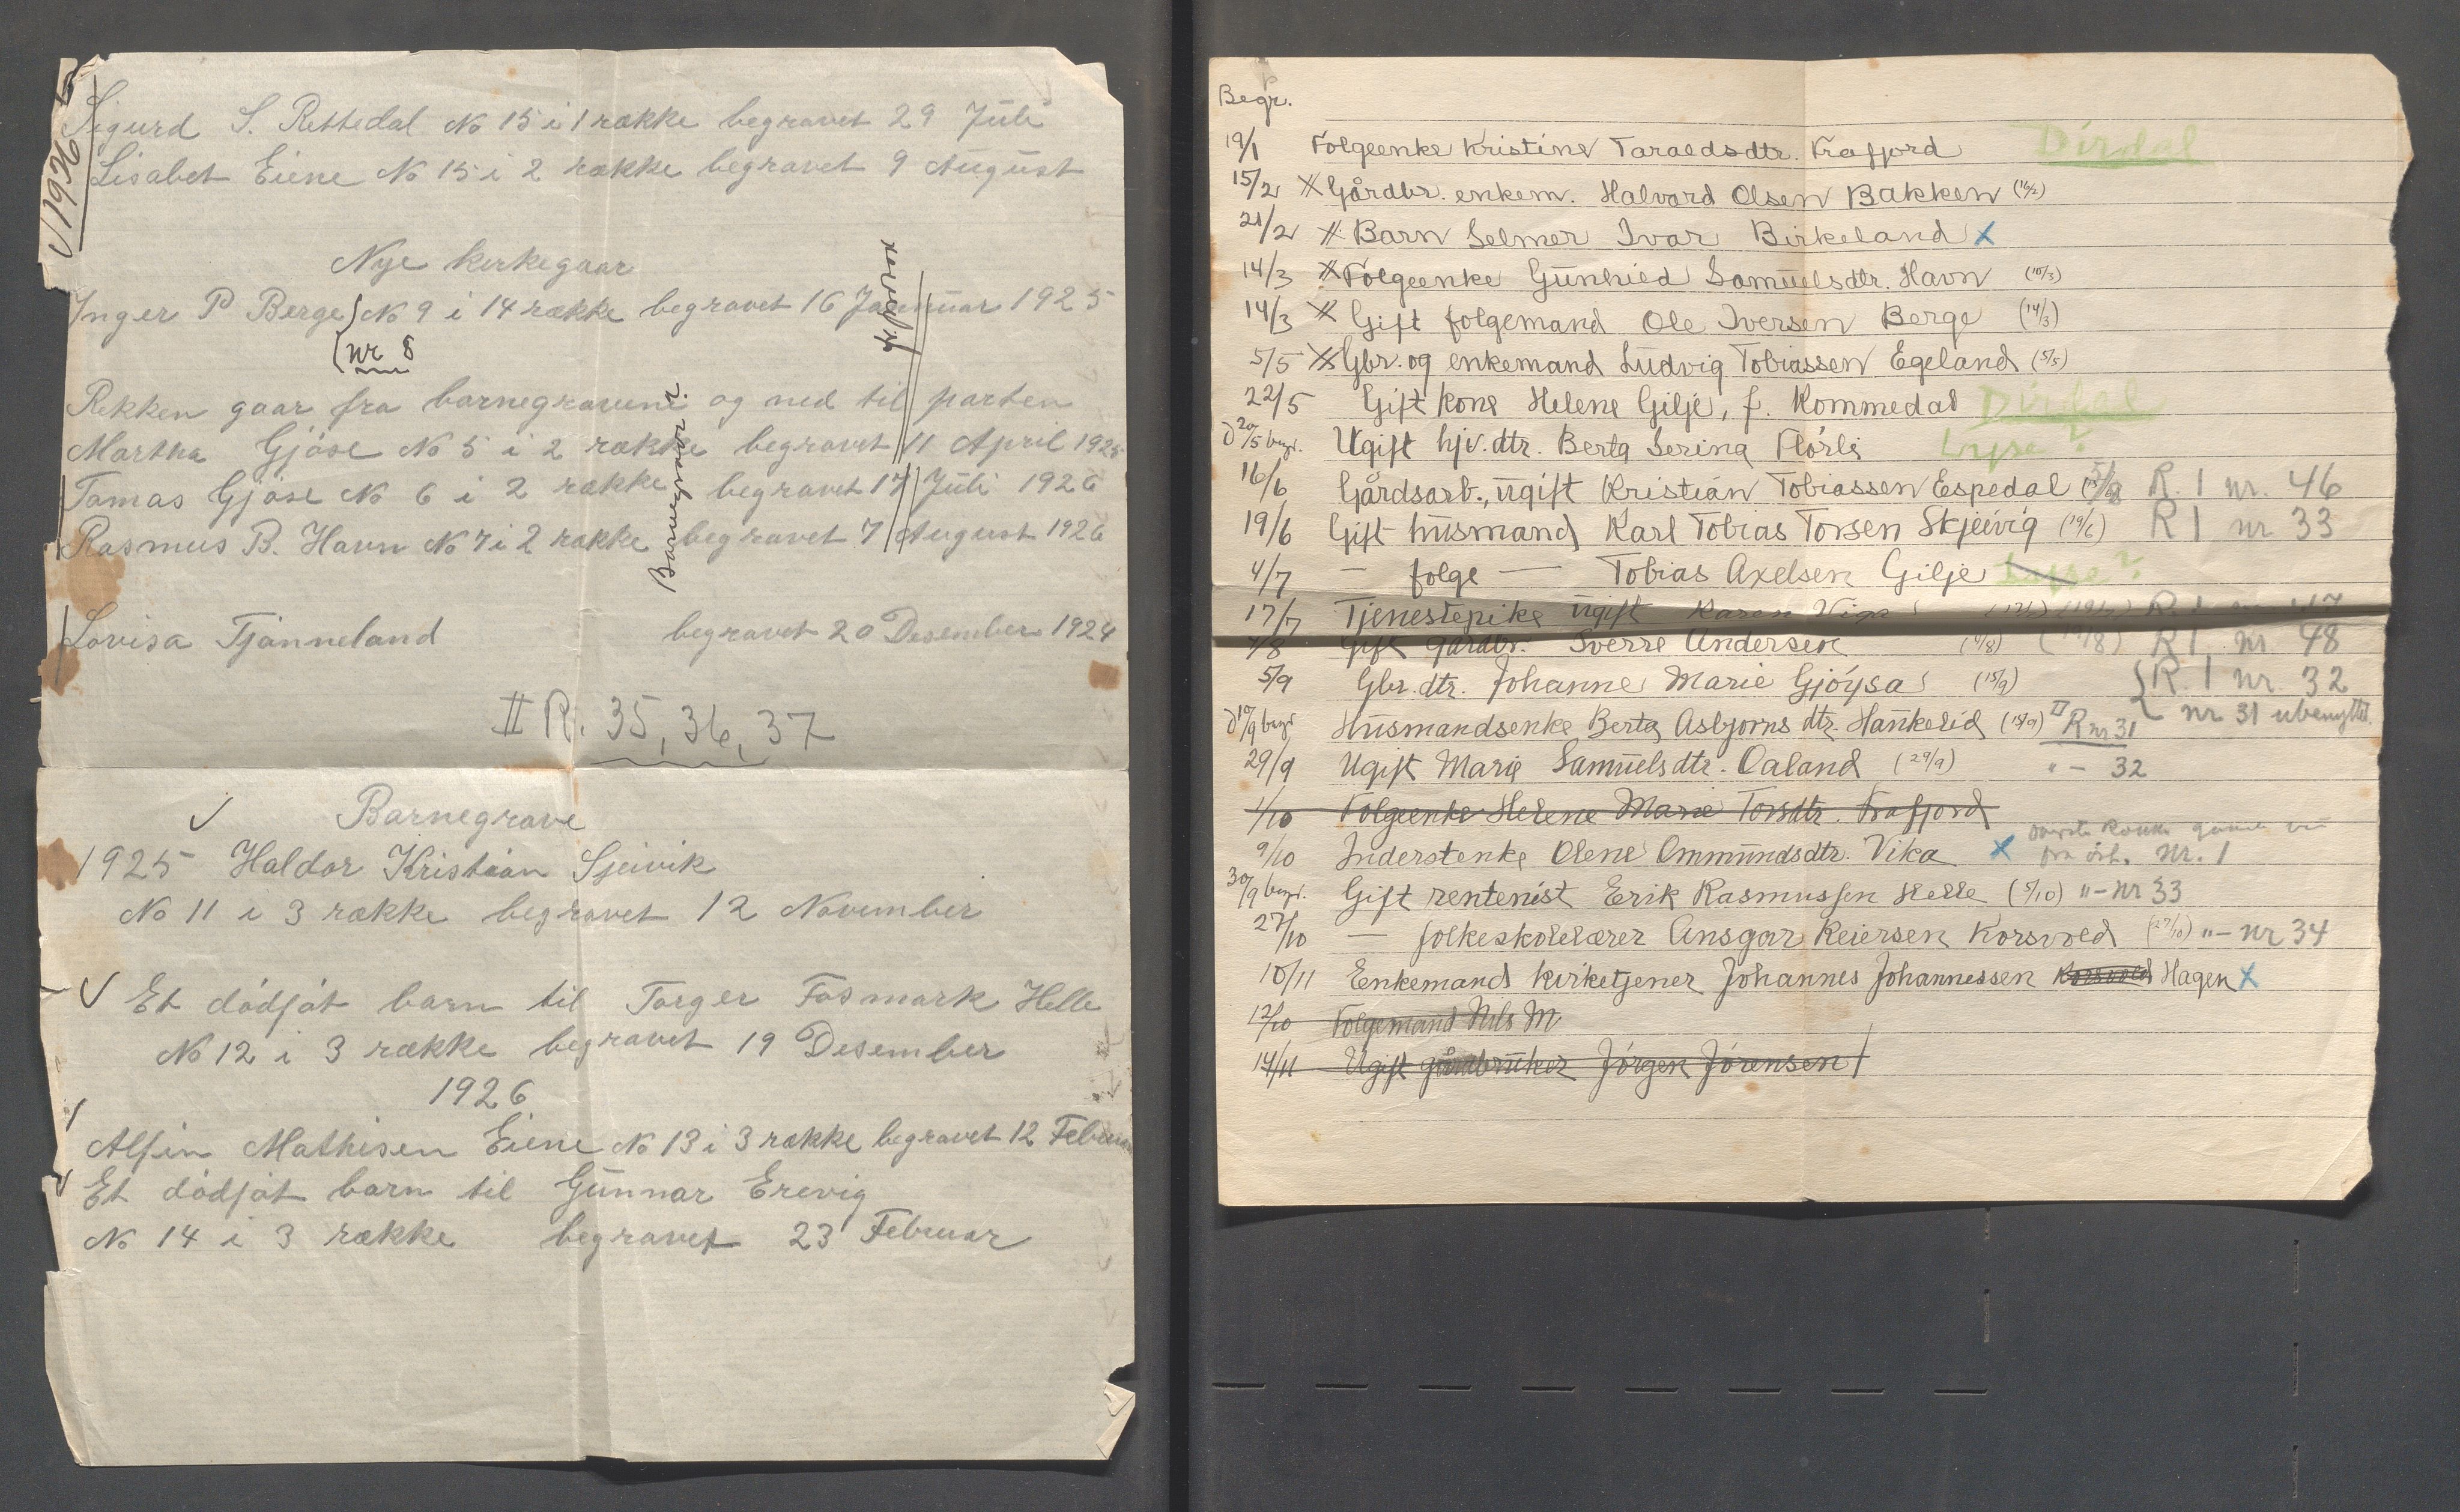 1936
Sigurd S. Rettedal No 15 i 1 række begravet 29 Juli
Lisabet Eiene No 15 i 2 række begravet 9 August
Nye kirkegaar
Inger P Berge No 9 i 14 række begravet 16 Januar 1925
(nr 8
Rekken gaar fra barnegravene og ned til porten
Martha Gjöse No 5 i 2 række begravet 11 April 1925
Tomas Gjöse No 6 i 2 række begravet 17 Juli 1926
Rasmus B. Havn No 7 i 2 række begravet 7 August 1926
Barnegraver.
Lovisa Tjänneland begravet 20 Desember 1924
II R. 35, 36, 37
Barnegrave
1925 Haldor Kristian Sjeivik
No 11 i 3 række begravet 12 November
Et dödföt barn til Torger Fosmark Helle
No 12 i 3 række begravet 19 Desember
1926
Alfin Mathisen Eiene No 13 i 3 række begravet 12 Februar
Et dödföt barn til Gunnar Erevig
No 14 i 3 række begravet 23 Februar
Begr.
19/1 Folgeenke Kristine Taraldsdtr. Frafjord Dirdal
15/2 X Gårdbr. enkem. Halvard Olsen Bakken (16/2)
21/2 X Barn Selmer Ivar Birkeland X
14/3 X Folgeenke Gunhild Samuelsdtr. Havn (10/3)
14/3 X Gift folgemand Ole Iversen Berge (14/3)
5/5 X Gbr. og enkemand Ludvig Tobiassen Egeland (5/5)
22/5 Gift kone Helene Gilje, f. Kommedal Dirdal
d 20/5 begr. Ugift hjv. dtr. Berta Serina Flörli Lyse?
16/6 Gårdsarb., ugift Kristian Tobiassen Espedal R. 1 nr. 46
19/6 Gift husmand Karl Tobias Torsen Skjeivig (19/6) R 1 nr 33
4/7 — folge — Tobias Axelsen Gilje Lyse?
17/7 Tjenestepike ugift Karen Viga R 1 nr 47
7/8 Gift gårdbr. Sverre Andersen (4/8) (12/8) R 1 nr 48
5/9 Gbr. dtr. Johanne Marie Gjöysa (15/9) {R. 1 nr. 32
nr 31 ubenyttet.
d 10/9 begr Husmandsenke Berta Asbjorns dtr. Haukelid (15/9) II R nr 31
29/9 Ugift Marie Samuelsdtr. Oaland (29/9) " — 32
1/10 Folgeenke Helene Marie Torsdtr. Frafjord
9/10 Inderstenke Olene Ommundsdtr. Vika X fra öst. Nr. 1
30/9 begr. Gift rentenist Erik Rasmussen Helle (5/10) " — nr 33
27/10 — folkeskolelærer Ansgar Reiersen Korsvold (27/10) " — nr 34
10/11 Enkemand kirketjener Johannes Johannessen Korsvold Hagen X
12/10 Folgemand Nils M
14/11 Ugift gårdbruker Jörgen Jörensen